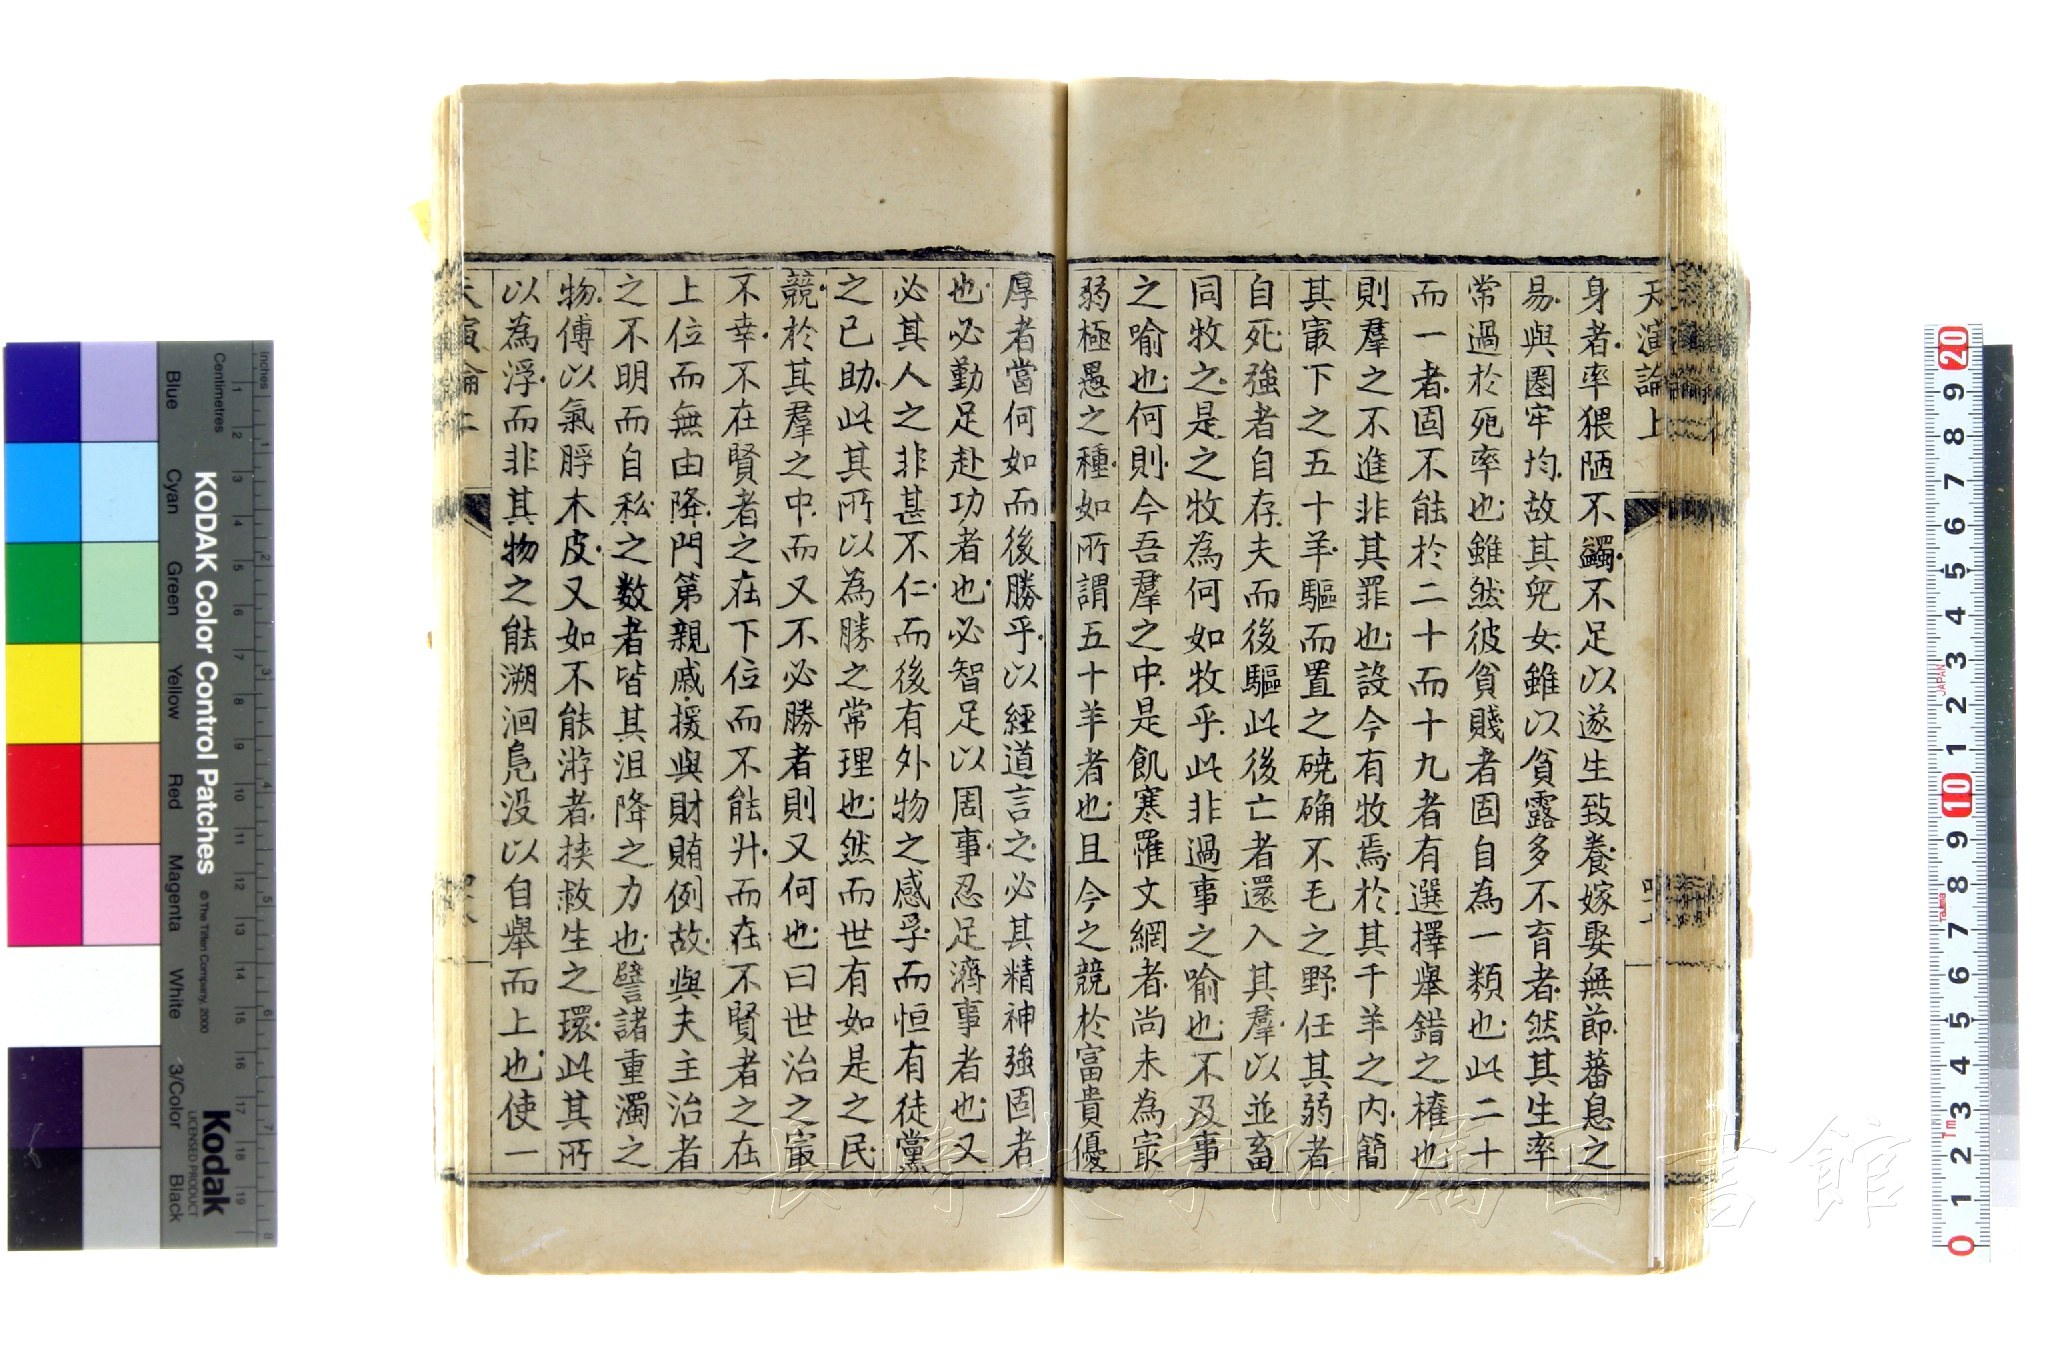 天演論上
身者率猥陋不蠲不足以遂生致養嫁娶無節蕃息之
易與圈牢均故其兒女雖以貧露多不育者然其生率
常過於死率也雖然彼貧賤者固自為一類也此二十
而一者固不能於二十而十九者有選擇舉錯之權也
則羣之不進非其罪也設今有牧焉於其千羊之內簡
其㝡下之五十羊驅而置之磽确不毛之野任其弱者
自死強者自存夫而後驅此後亡者還入其羣以並畜
同牧之是之牧為何如牧乎此非過事之喻也不及事
之喻也何則今吾羣之中是飢寒罹文網者尚未為㝡
弱極愚之種如所謂五十羊者也且今之競於富貴優
厚者當何如而後勝乎以經道言之必其精神強固者
也必勤足赴功者也必智足以周事忍足濟事者也又
必其人之非甚不仁而後有外物之感孚而恒有徒黨
之已助此其所以為勝之常理也然而世有如是之民
競於其羣之中而又不必勝者則又何也曰世治之㝡
不幸不在賢者之在下位而不能升而在不賢者之在
上位而無由降門第親戚援與財賄例故與夫主治者
之不明而自私之数者皆其沮降之力也譬諸重濁之
物傅以氣脬木皮又如不能游者挾救生之環此其所
以為浮而非其物之能溯洄鳧没以自舉而上也使一
天演論上
KODAK Color Control Patches
© The Tiffen Company, 2000
Kodak
LICENSED PRODUCT
Inches
Centimetres
Blue Cyan Green Yellow Red Magenta White 3/Color Black
1 2 3 4 5 6 7 8 9 10 11 12 13 14 15 16 17 18 19
1 2 3 4 5 6 7 8
20 9 8 7 6 5 4 3 2 1 10 9 8 7 6 5 4 3 2 1 0
JAPAN
Tajima
1m
長崎大学附属図書館